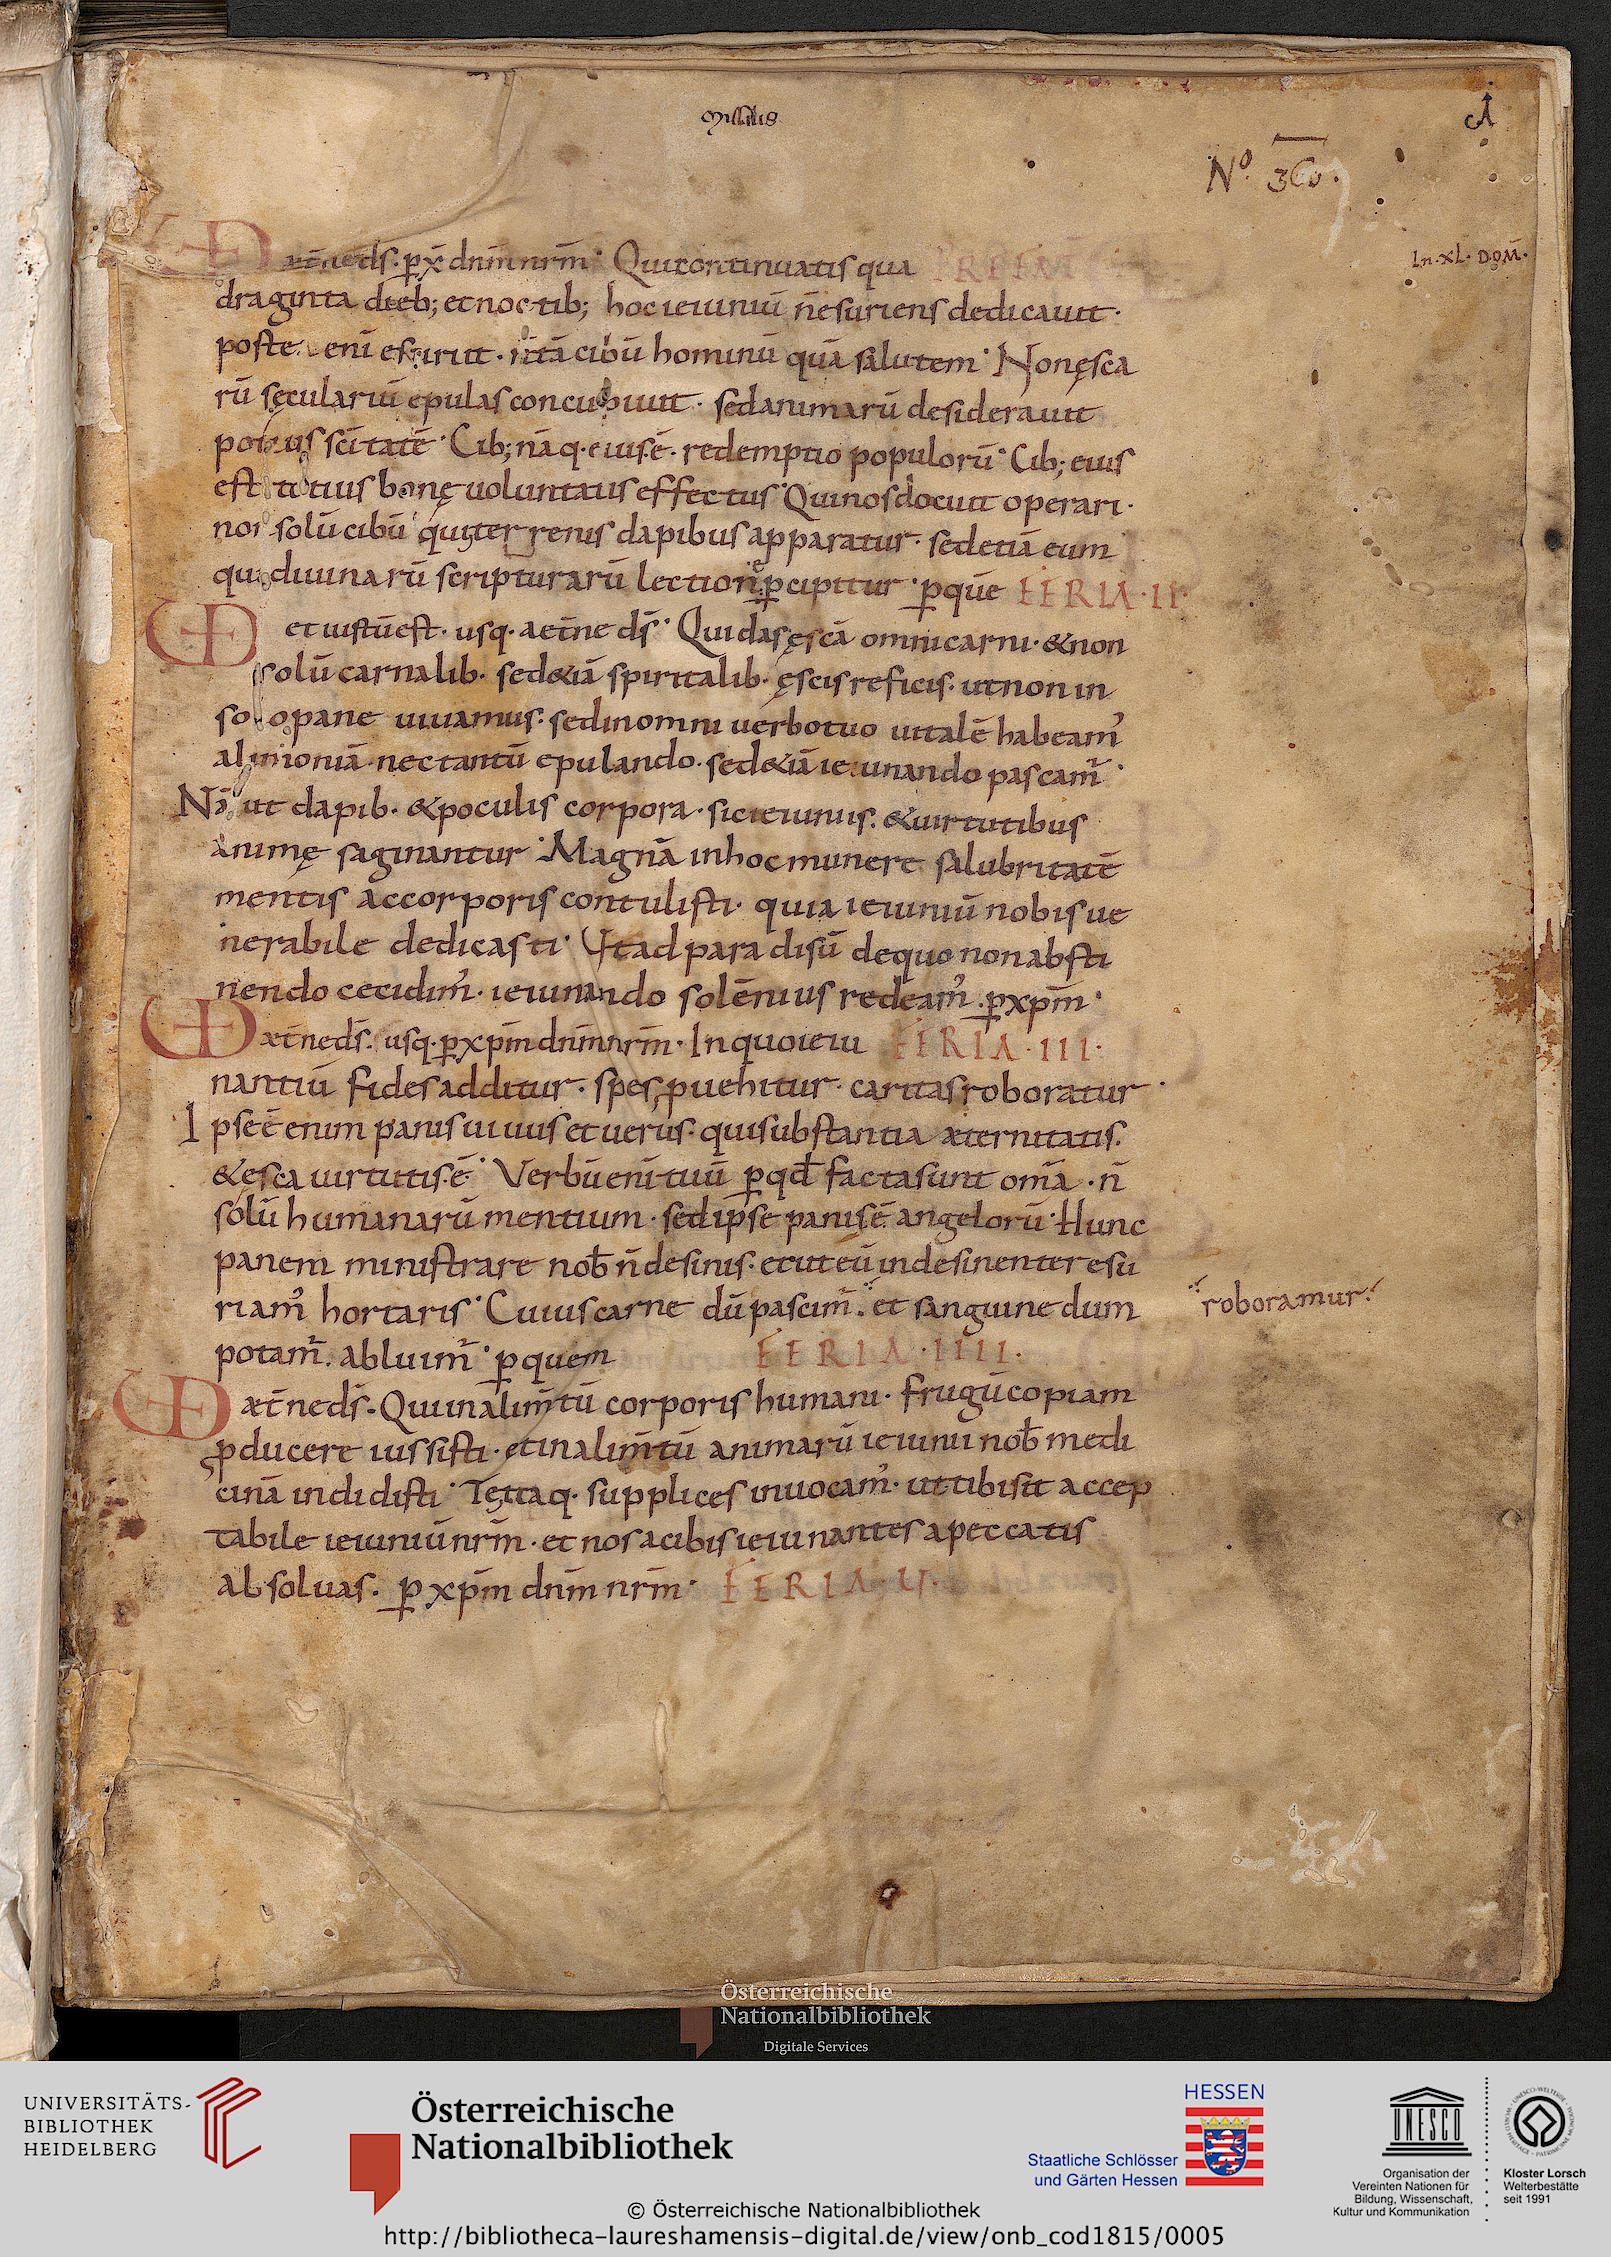 Missalis
A
Nº 360.
In·XL· DOM̄·
VD aet̄ne ds̄· ꝑ xp̄ dnm̄ nrm̄· Qui continuatis qua PREFAT
draginta dieb; et noctib; hoc ieiuniū n̄ esuriens dedicauit·
poste enī esuriit· n̄ tā cibū hominū quā salutem· Non ęsca
rū sęculariū epulas concupiuit· sed animarū desiderauit
potius scītatē· Cib; nāq· eius ē· redemptio populorū· Cib; eius
est totius bonę uoluntatis effectus· Qui nos docuit operari·
non solū cibū qui terrenis dapibus apparatur· sed etiā eum
qui diuinarū scripturarū lectione ꝑcipitur· ꝑ quē FERIA·II·
VD et iustū est· usq· aet̄ne ds̄· Qui das ęscā omni carni· & non
solū carnalib· sed &iā spiritalib· ęscis reficis· ut non in
solo pane uiuamus· sed in omni uerbo tuo uitalē habeam᾿
alimoniā· nec tantū epulando· sed &iā ieiunando pascam᾿·
Nā ut dapib· & poculis corpora· sic ieiuniis· & uirtutibus
animę saginantur· Magnā in hoc munere salubritatē
mentis ac corporis contulisti· quia ieiuniū nobis ue
nerabile dedicasti· Ut ad paradisū de quo non absti
nendo cecidim᾿· ieiunando solēnius redeam᾿· ꝑ xpm̄·
VD aet̄ne ds̄· usq· ꝑ xpm̄ dnm̄ nrm̄· In quo ieiu FERIA·III·
nantiū fides additur· spes ꝓuehitur· caritas roboratur·
Ipse ē enim panis uiuus et uerus· qui substantia aeternitatis·
& esca uirtutis ē· Verbū enī tuū ꝑ qd̄ facta sunt omā· n̄
solū humanarū mentium· sed ipse panis ē angelorū· Hunc
panem ministrare nob̄ n̄ desinis· et ut eū indesinenter esu
riam᾿ hortaris· Cuius carne dū pascim᾿· et sanguine dum
roboramur·
potam᾿· abluim᾿· ꝑ quem FERIA·IIII·
VD aet̄ne ds̄· Qui in alim̄tū corporis humani· frugū copiam
ꝓducere iussisti· et in alim̄tū animarū ieiunii nob̄ medi
cinā indidisti· Te itaq· supplices inuocam᾿· ut tibi sit accep
tabile ieiuniū nrm̄· et nos a cibis ieiunantes a peccatis
absoluas· ꝑ xpm̄ dnm̄ nrm̄· FERIA·U·
Österreichische
Nationalbibliothek
Digitale Services
UNIVERSITÄTS-
BIBLIOTHEK
HEIDELBERG
Österreichische
Nationalbibliothek
HESSEN
Staatliche Schlösser
und Gärten Hessen
UNESCO
Organisation der
Vereinten Nationen für
Bildung, Wissenschaft,
Kultur und Kommunikation
Kloster Lorsch
Welterbestätte
seit 1991
© Österreichische Nationalbibliothek
http://bibliotheca-laureshamensis-digital.de/view/onb_cod1815/0005